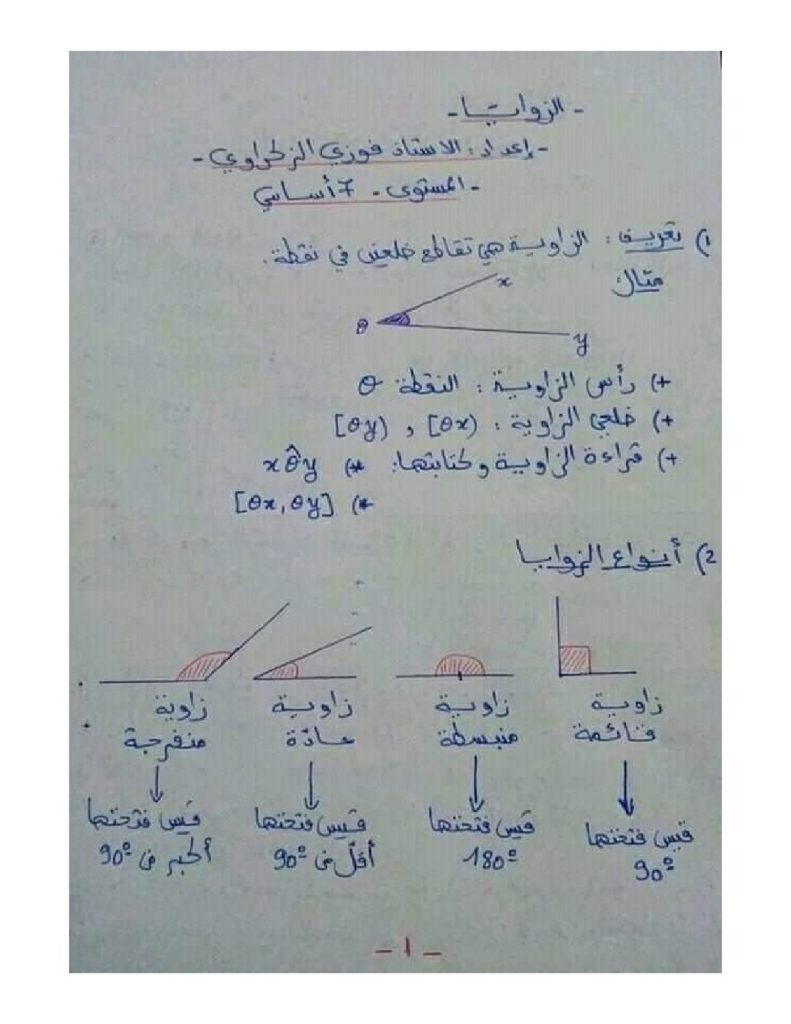 - الزوايا -
- إعداد : الاستاذ فوزي الزكراوي -
- المستوى - 7 أساسي
1) تعريف : الزاوية هي تقاطع ضلعين في نقطة .
مثال
x
θ
y
+) رأس الزاوية : النقطة θ
+) ضلعي الزاوية : [θx) و [θy)
+) قراءة الزاوية وكتابتها : *) xθ̂y
*) [θx, θy]
2) أنواع الزوايا
زاوية قائمة
زاوية منبسطة
زاوية حادّة
زاوية منفرجة
قيس فتحتها 90°
قيس فتحتها 180°
قيس فتحتها أقلّ من 90°
قيس فتحتها أكبر من 90°
- 1 -